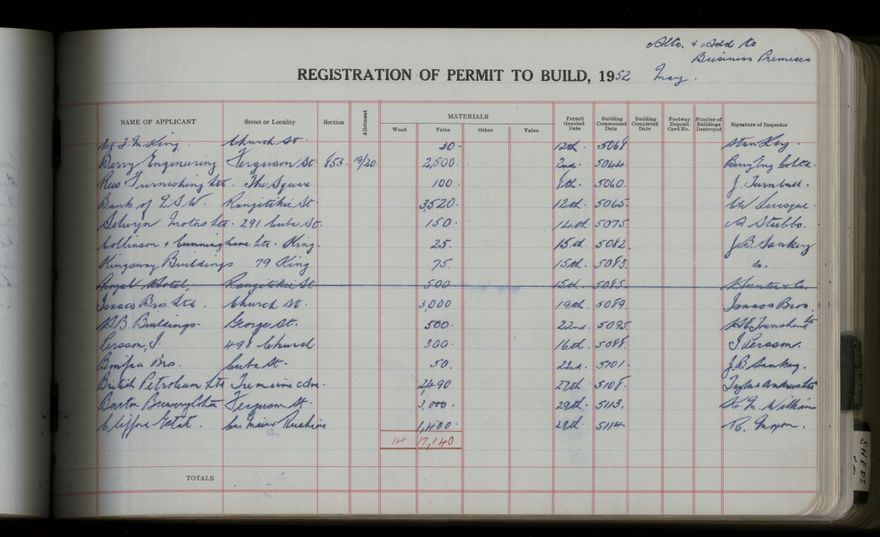 Alto. & Add to
Business Premises
REGISTRATION OF PERMIT TO BUILD, 1952 May.
NAME OF APPLICANT Street or Locality Section Allotment MATERIALS Wood Value Other Value Permit Granted Date Building Commenced Date Building Completed Date Footway Deposit Card No. Number of Buildings Destroyed Signature of Inspector
King Church St 20 12th 5068 Stan King
Berry Engineering Ferguson St 653 19/20 2,500 2nd 5044 Berry Eng
Furnishing Ltd. The Square 100 8th 5060 J. Turnbull
Bank of N.S.W. Rangitikei St 3,520 12th 5065
Selwyn Motors Ltd. 291 Cuba St. 150 14th 5075 Stubbs
Collinson & Cunninghame Ltd. King 25 15th 5082 J.B. Sankey
Kingsway Buildings 79 King 75 15th 5083 do.
Royal Hotel, Rangitikei St 500 15th 5085 Hunter & Co
Isaacs Bros Ltd. Church St. 3,000 19th 5089 Isaacs Bros
Buildings George St. 500 22nd 5095
Persson, J. 498 Church 300 16th 5088 J Persson.
Bros. Cuba St. 50 22nd 5101 J.B Sankey.
British Petroleum Ltd Tremaine 2490 27th 5108
Barton Brewery Ferguson St. 3,000 29th 5113
Main & Ruahine 1,400 29th 5114
14 17,140
TOTALS
SHEDS